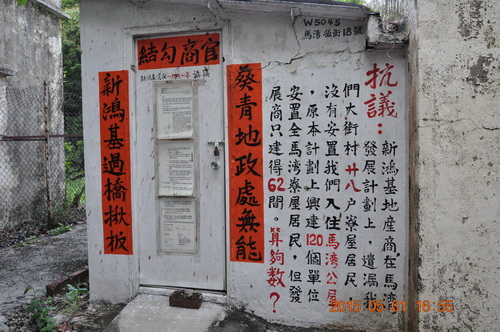 W5045
官商勾結
新鴻基過橋揪板
葵青地政處無能
抗議：新鴻基地產商在馬
灣發展計劃上，遺漏我
們大街村廿八户寮屋居民
沒有安置我們入住馬灣公屋
，原本計劃上興建120個單位
安置全馬灣寮屋居民，但發
展商只建得62間。算夠數？